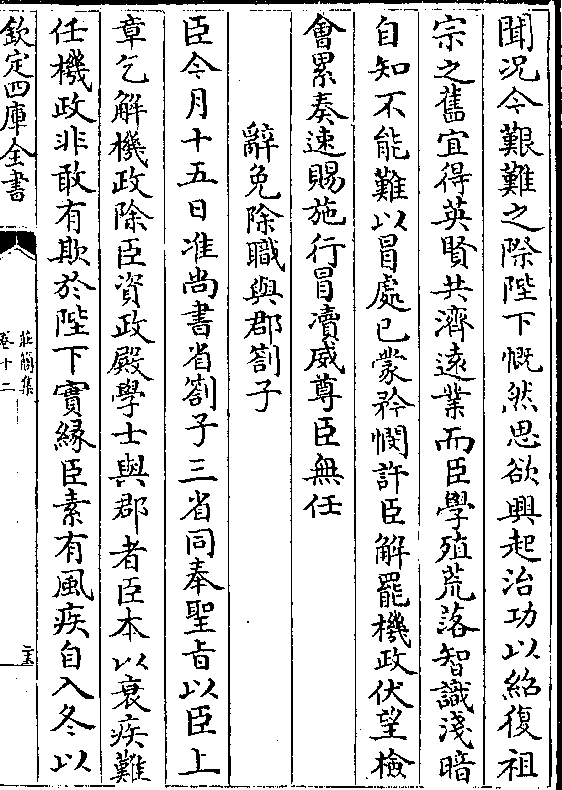 聞況今艱難之際陛下慨然思欲興起治功以紹復祖
宗之舊宜得英賢共濟遠業而臣學殖荒落智識淺暗
自知不能難以冒處已蒙矜憫許臣解罷機政伏望檢
會累奏速賜施行冒瀆威尊臣無任
辭免除職與郡劄子
臣今月十五日准尚書省劄子三省同奉聖旨以臣上
章乞解機政除臣資政殿學士與郡者臣本以衰疾難
任機政非敢有欺於陛下實緣臣素有風疾自入冬以
欽定四庫全書
莊簡集
卷十二